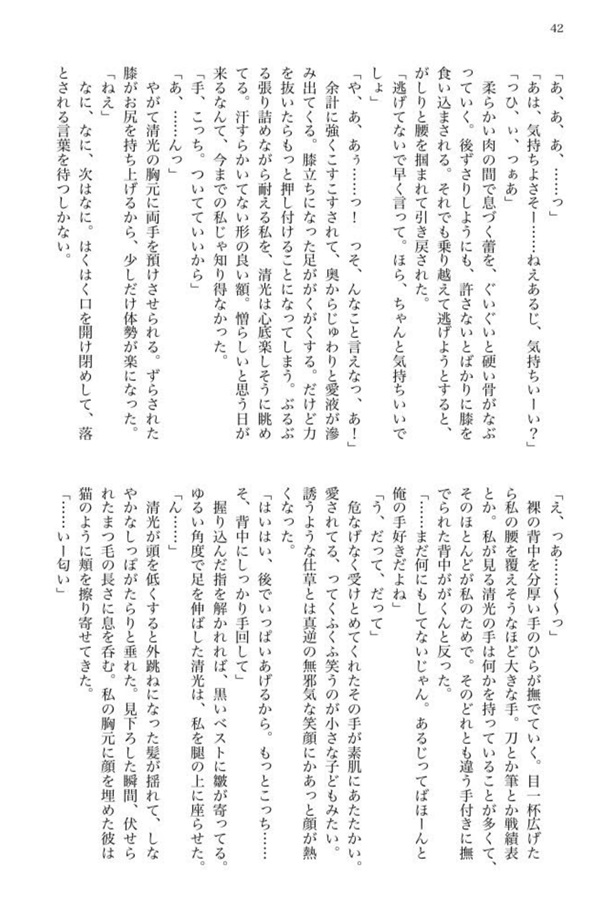 42
「あ、あ、あ、……っ」
「あは、気持ちよさそー……ねえあるじ、気持ちいーい？」
「っひ、ぃ、っぁあ」
　柔らかい肉の間で息づく蕾を、ぐいぐいと硬い骨がなぶ
っていく。後ずさりしようにも、許さないとばかりに膝を
食い込まされる。それでも乗り越えて逃げようとすると、
がしりと腰を掴まれて引き戻された。
「逃げてないで早く言って。ほら、ちゃんと気持ちいいで
しょ」
「や、あ、あぅ……っ！　っそ、んなこと言えなっ、あ！」
　余計に強くこすこすされて、奥からじゅわりと愛液が滲
み出てくる。膝立ちになった足ががくがくする。だけど力
を抜いたらもっと押し付けることになってしまう。ぶるぶ
る張り詰めながら耐える私を、清光は心底楽しそうに眺め
てる。汗すらかいてない形の良い額。憎らしいと思う日が
来るなんて、今までの私じゃ知り得なかった。
「手、こっち。ついてていいから」
「あ、……んっ」
　やがて清光の胸元に両手を預けさせられる。ずらされた
膝がお尻を持ち上げるから、少しだけ体勢が楽になった。
「ねえ」
　なに、なに、次はなに。はくはく口を開け閉めして、落
とされる言葉を待つしかない。
「え、っあ……〜〜っ」
　裸の背中を分厚い手のひらが撫でていく。目一杯広げた
ら私の腰を覆えそうなほど大きな手。刀とか筆とか戦績表
とか。私が見る清光の手は何かを持っていることが多くて、
そのほとんどが私のためで。そのどれとも違う手付きに撫
でられた背中ががくんと反った。
「……まだ何にもしてないじゃん。あるじってばほーんと
俺の手好きだよね」
「う、だって、だって」
　危なげなく受けとめてくれたその手が素肌にあたたかい。
愛されてる、ってくふくふ笑うのが小さな子どもみたい。
誘うような仕草とは真逆の無邪気な笑顔にかあっと顔が熱
くなった。
「はいはい、後でいっぱいあげるから。もっとこっち……
そ、背中にしっかり手回して」
　握り込んだ指を解かれれば、黒いベストに皺が寄ってる。
ゆるい角度で足を伸ばした清光は、私を腿の上に座らせた。
「ん……」
　清光が頭を低くすると外跳ねになった髪が揺れて、しな
やかなしっぽがたらりと垂れた。見下ろした瞬間、伏せら
れたまつ毛の長さに息を呑む。私の胸元に顔を埋めた彼は
猫のように頬を擦り寄せてきた。
「……いー匂い」